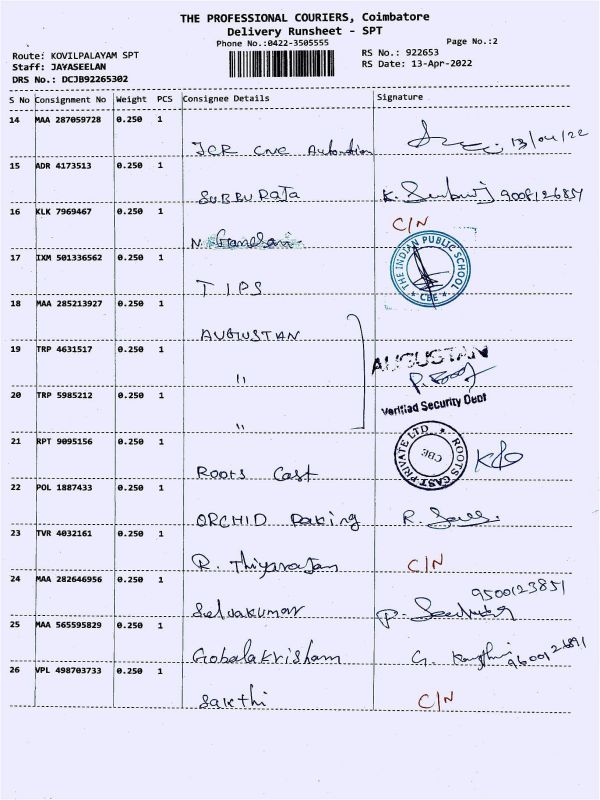 THE PROFESSIONAL COURIERS, Coimbatore
Delivery Runsheet - SPT
Phone No.:0422-3505555
Page No.:2
Route: KOVILPALAYAM SPT
RS No.: 922653
Staff: JAYASEELAN
RS Date: 13-Apr-2022
DRS No.: DCJB92265302
S No Consignment No Weight PCS Consignee Details Signature
14 MAA 287059728 0.250 1
JCR CNC Automation 13/04/22
15 ADR 4173513 0.250 1
SUBBURAJA K.
16 KLK 7969467 0.250 1
N. Ganesan C/N
17 IXM 501336562 0.250 1
TIPS THE INDIAN PUBLIC SCHOOL
* CBE *
18 MAA 285213927 0.250 1
AUGUSTAN
19 TRP 4631517 0.250 1
" AUGUSTAN
20 TRP 5985212 0.250 1
" Verified Security Dept
21 RPT 9095156 0.250 1
Roots Cast ROOTS CAST PRIVATE LTD
CBE
22 POL 1887433 0.250 1
ORCHID R.
23 TVR 4032161 0.250 1
R. Thiyarajan C/N
24 MAA 282646956 0.250 1
9500123851
Selvakumar P.
25 MAA 565595829 0.250 1
Gobalakrisham G.
26 VPL 498703733 0.250 1
Sakthi C/N